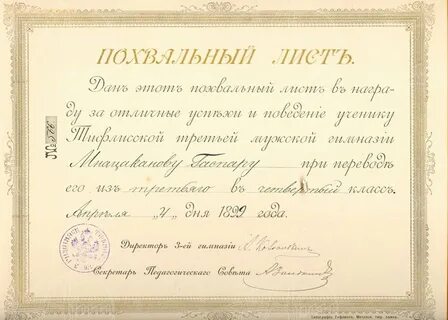 ПОХВАЛЬНЫЙ ЛИСТЪ.
Данъ этотъ похвальный листъ въ награ-
ду за отличные успѣхи и поведеніе ученику
Тифлисской третьей мужской гимназіи
Мнацаканову Гаспару при переводѣ
его изъ третьяго въ четвертый классъ.
Апрѣля "4" дня 1899 года.
Директоръ 3-ей гимназіи
Секретарь Педагогическаго Совѣта
№